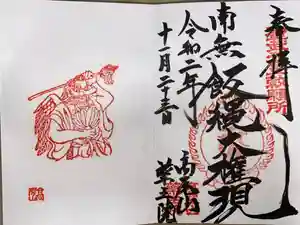 奉拝
南無飯縄大権現
令和二年
十一月二十三日
高尾山
薬王院